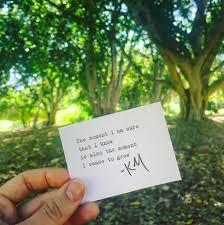 The moment I am sure
that I know
is also the moment
I cease to grow
-KM